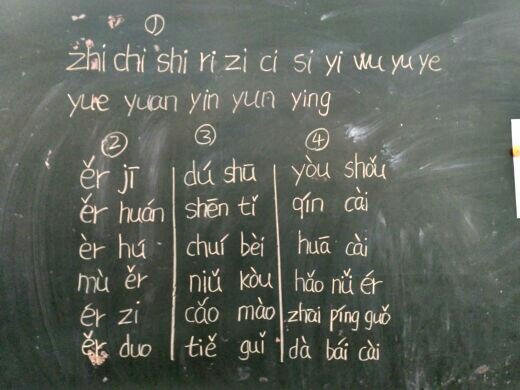 ①
zhi chi shi ri zi ci si yi wu yu ye
yue yuan yin yun ying
② ③ ④
ěr jī dú shū yòu shǒu
ěr huán shēn tǐ qín cài
èr hú chuí bèi huā cài
mù ěr niǔ kòu hǎo nǚ ér
ér zi cǎo mào zhāi píng guǒ
ěr duo tiě guǐ dà bái cài